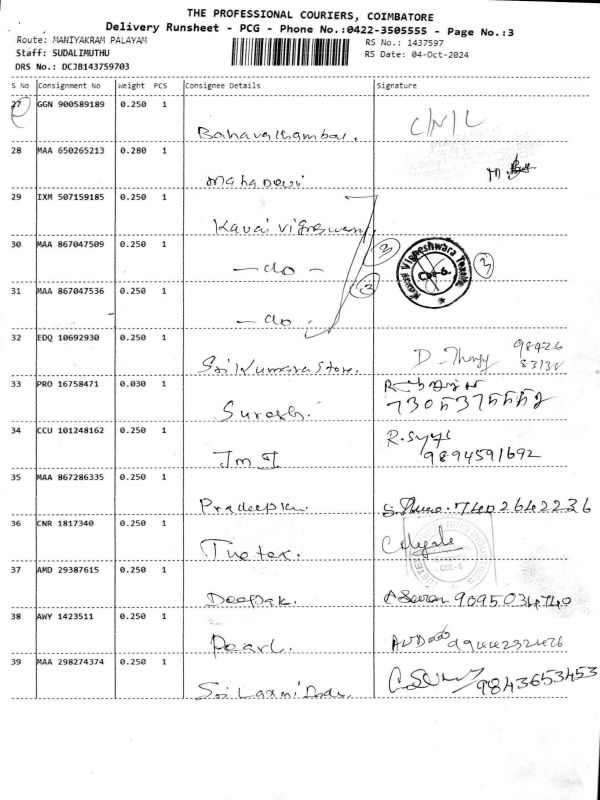 THE PROFESSIONAL COURIERS, COIMBATORE
Delivery Runsheet - PCG - Phone No.:0422-3505555 - Page No.:3
Route: MANIYAKRAM PALAYAM
RS No.: 1437597
Staff: SUDALIMUTHU
RS Date: 04-Oct-2024
DRS No.: DCJB143759703
S No Consignment No Weight PCS Consignee Details Signature
27 GGN 900589189 0.250 1
C/N/L
28 MAA 650265213 0.280 1
Mahadevi
29 IXM 507159185 0.250 1
Kavai Vigneswara
30 MAA 867047509 0.250 1
- do -
3
Kavai Vigneshwara
CBE-6
3
31 MAA 867047536 0.250 1
3
- do -
32 EDQ 10692930 0.250 1
Sri Kumara Store.
98426
33 PRO 16758471 0.030 1
Suresh.
7305375552
34 CCU 101248162 0.250 1
Jm J
9894591692
35 MAA 867286335 0.250 1
Pradeep
7402642236
36 CNR 1817340 0.250 1
CBE-6
37 AMD 29387615 0.250 1
Deepak.
9095034740
38 AWY 1423511 0.250 1
Pearl.
39 MAA 298274374 0.250 1
Sri Laxmi
9843653453